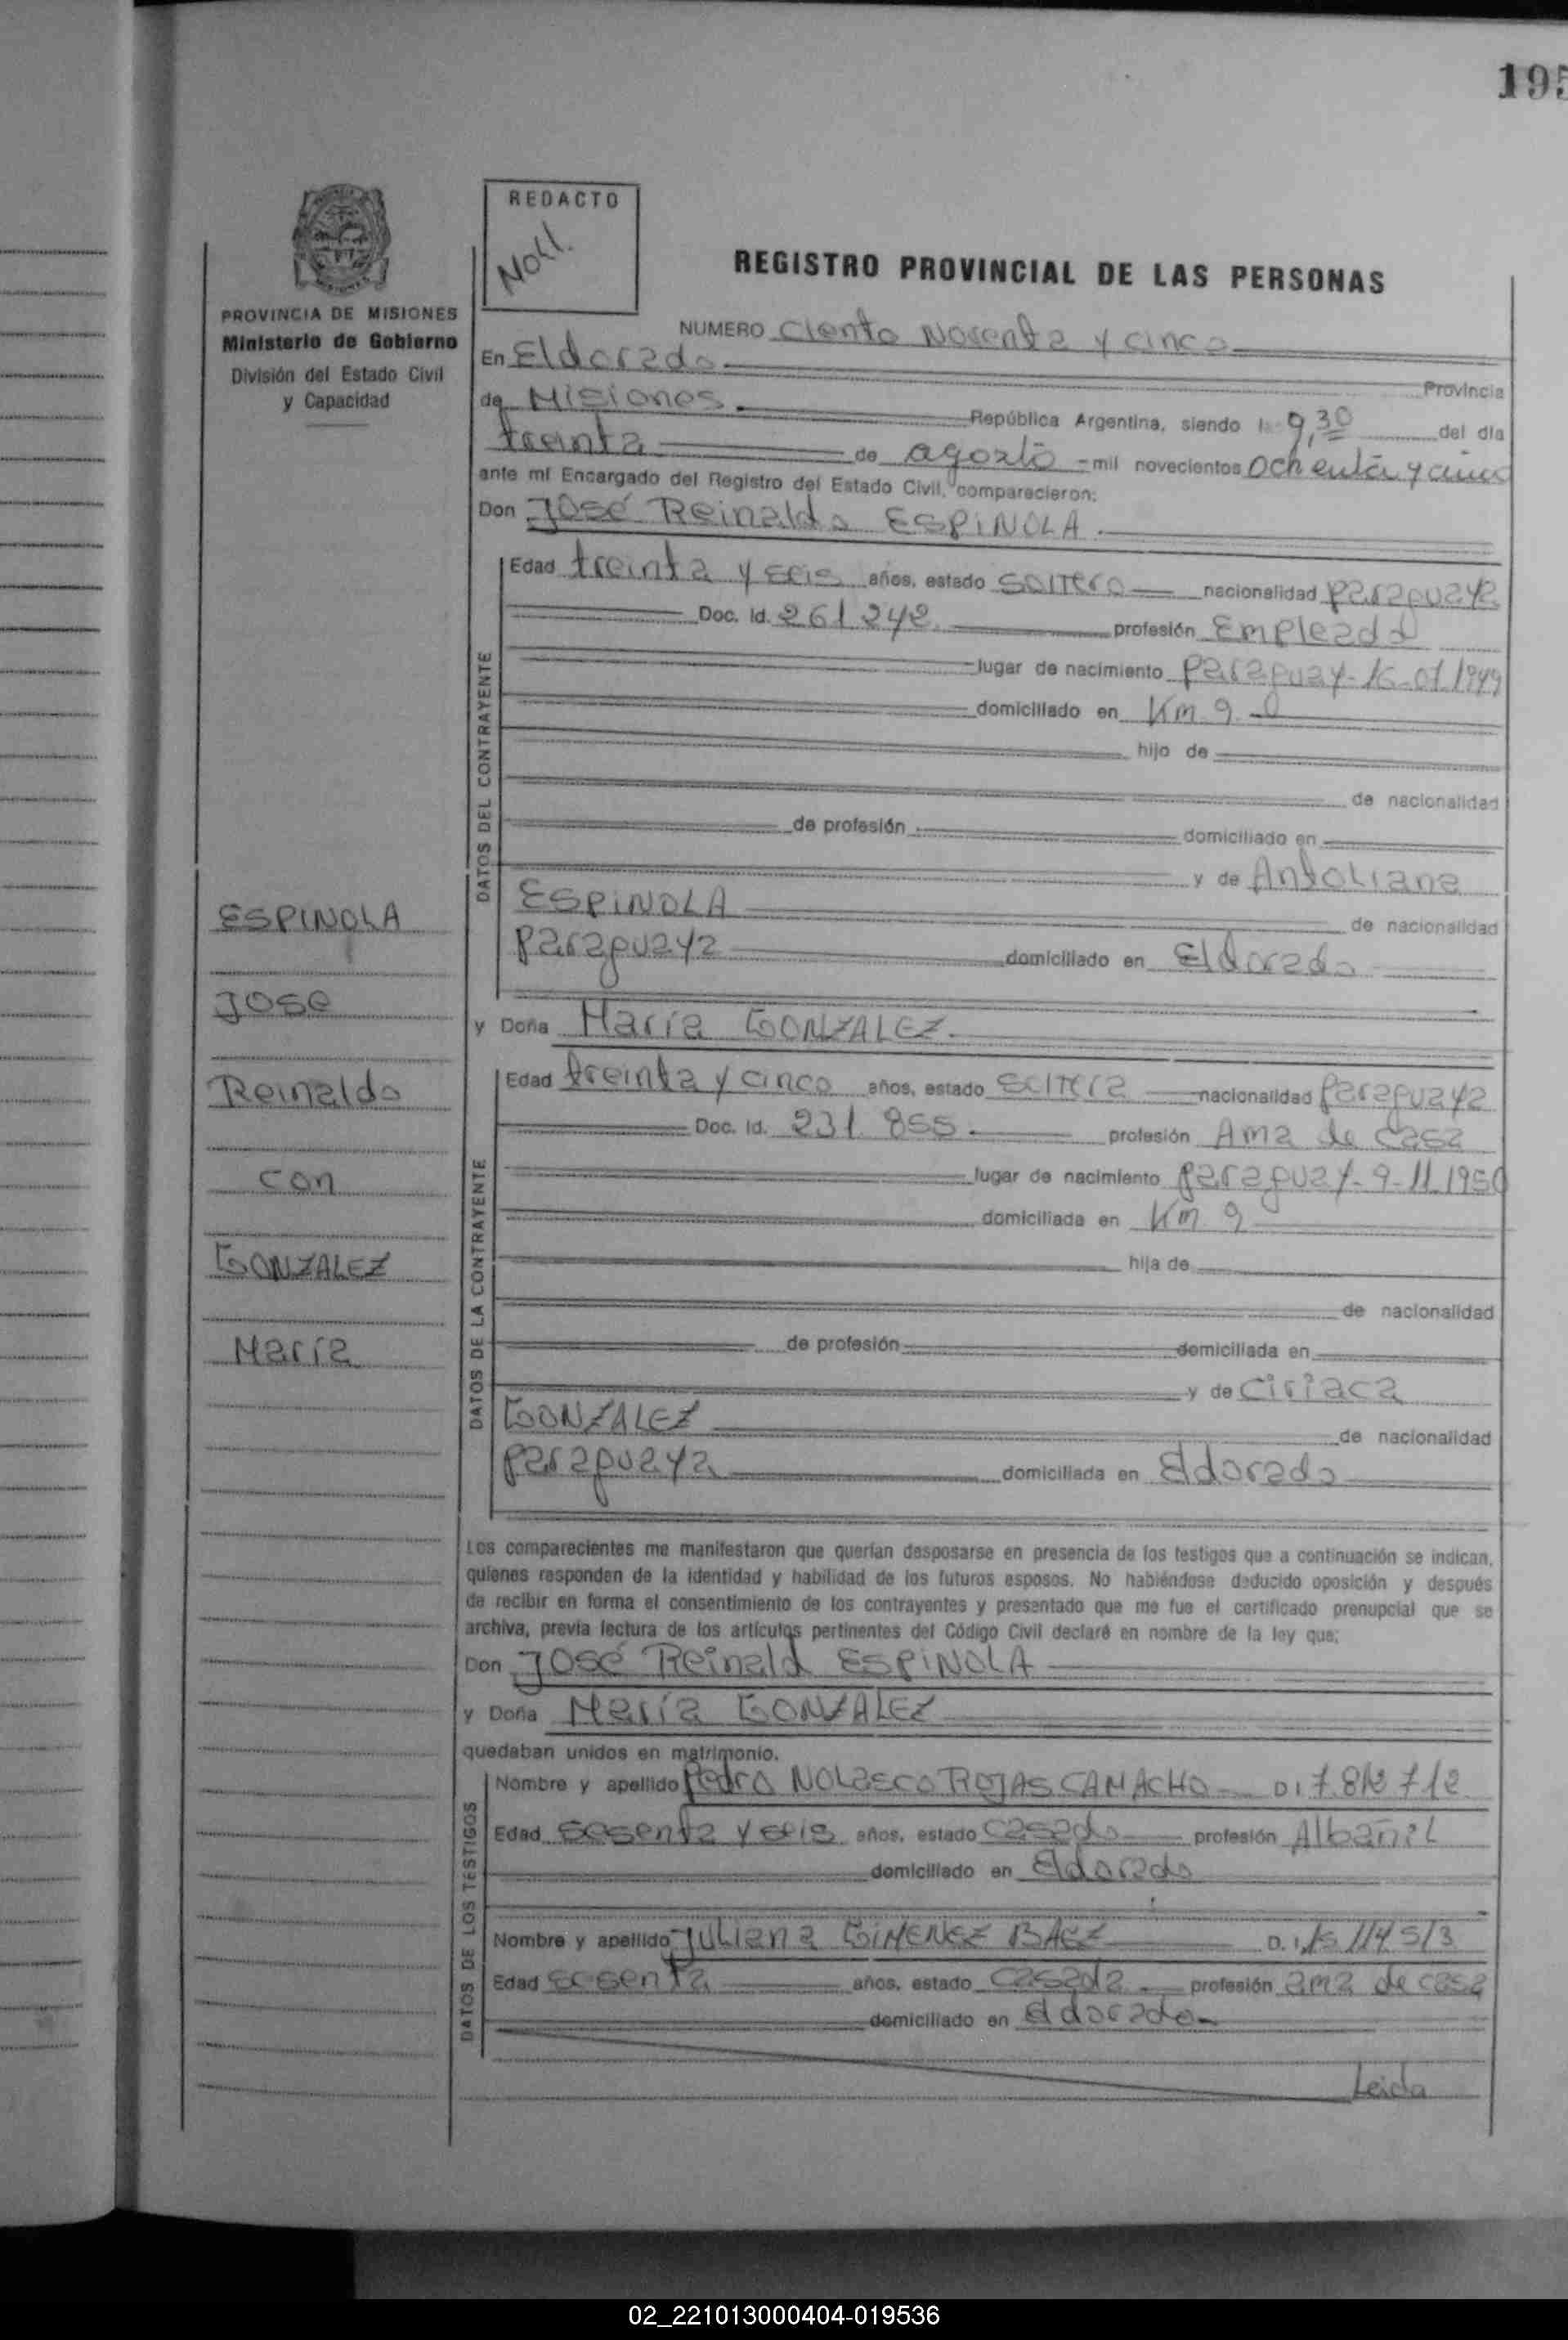 195
REDACTO
Noll.
REGISTRO PROVINCIAL DE LAS PERSONAS
PROVINCIA DE MISIONES
Ministerio de Gobierno
División del Estado Civil
y Capacidad
NUMERO Ciento Noventa y cinco
En Eldorado Provincia
de Misiones República Argentina, siendo las 9,30 del día
treinta de agosto mil novecientos ochenta y cinco
ante mí Encargado del Registro del Estado Civil, comparecieron:
Don José Reinaldo ESPINOLA
DATOS DEL CONTRAYENTE
Edad treinta y seis años, estado soltero nacionalidad paraguaya
Doc. Id. 261.242. profesión Empleado
lugar de nacimiento paraguay-16-01 1949
domiciliado en Km 9
hijo de
de nacionalidad
de profesión domiciliado en
y de Antoliana
ESPINOLA de nacionalidad
paraguaya domiciliado en Eldorado
y Doña María GONZALEZ.
DATOS DE LA CONTRAYENTE
Edad treinta y cinco años, estado soltera nacionalidad paraguaya
Doc. Id. 231.855. profesión Ama de casa
lugar de nacimiento paraguay-9-11 1950
domiciliada en Km 9
hija de
de nacionalidad
de profesión domiciliada en
y de Ciriaca
GONZALEZ de nacionalidad
paraguaya domiciliada en Eldorado
ESPINOLA
JOSE
Reinaldo
con
GONZALEZ
María
Los comparecientes me manifestaron que querían desposarse en presencia de los testigos que a continuación se indican,
quienes responden de la identidad y habilidad de los futuros esposos. No habiéndose deducido oposición y después
de recibir en forma el consentimiento de los contrayentes y presentado que me fue el certificado prenupcial que se
archiva, previa lectura de los artículos pertinentes del Código Civil declaré en nombre de la ley que:
Don José Reinald ESPINOLA
y Doña María GONZALEZ
quedaban unidos en matrimonio.
DATOS DE LOS TESTIGOS
Nombre y apellido Pedro NOLASCO ROJAS CAMACHO D.I 7.812.712
Edad sesenta y seis años, estado casado profesión Albañil
domiciliado en Eldorado
Nombre y apellido Juliana GIMENEZ BAEZ D.I.
Edad sesenta años, estado casada profesión ama de casa
domiciliado en Eldorado
Leida
02_221013000404-019536